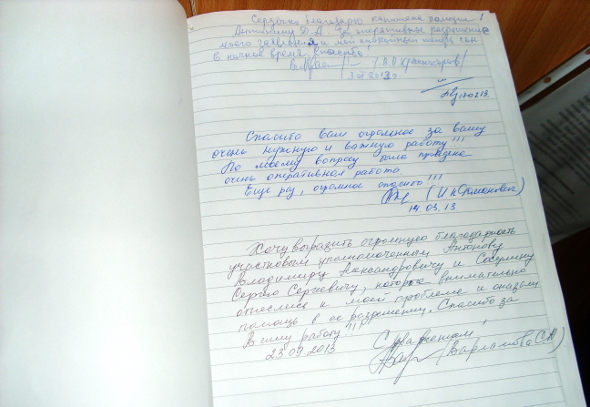 Сердечно благодарю капитана полиции!
Антипину Д.А. за оперативное разрешение
моего заявления и мой спокойный
в ночное время. Спасибо!
3.02.2013г
Спасибо вам огромное за вашу
очень нужную и важную работу!!!
По моему вопросу была проведена
очень оперативная работа
Еще раз, огромное спасибо!!!
14.03.13
Хочу выразить огромную благодарность
участковым уполномоченным Антонову
Владимиру Александровичу и
Сергею Сергеевичу, которые внимательно
отнеслись к моей проблеме и оказали
помощь в ее разрешении. Спасибо за
Вашу работу!!!
С уважением,
23.09.2013
(Варламова С.А)